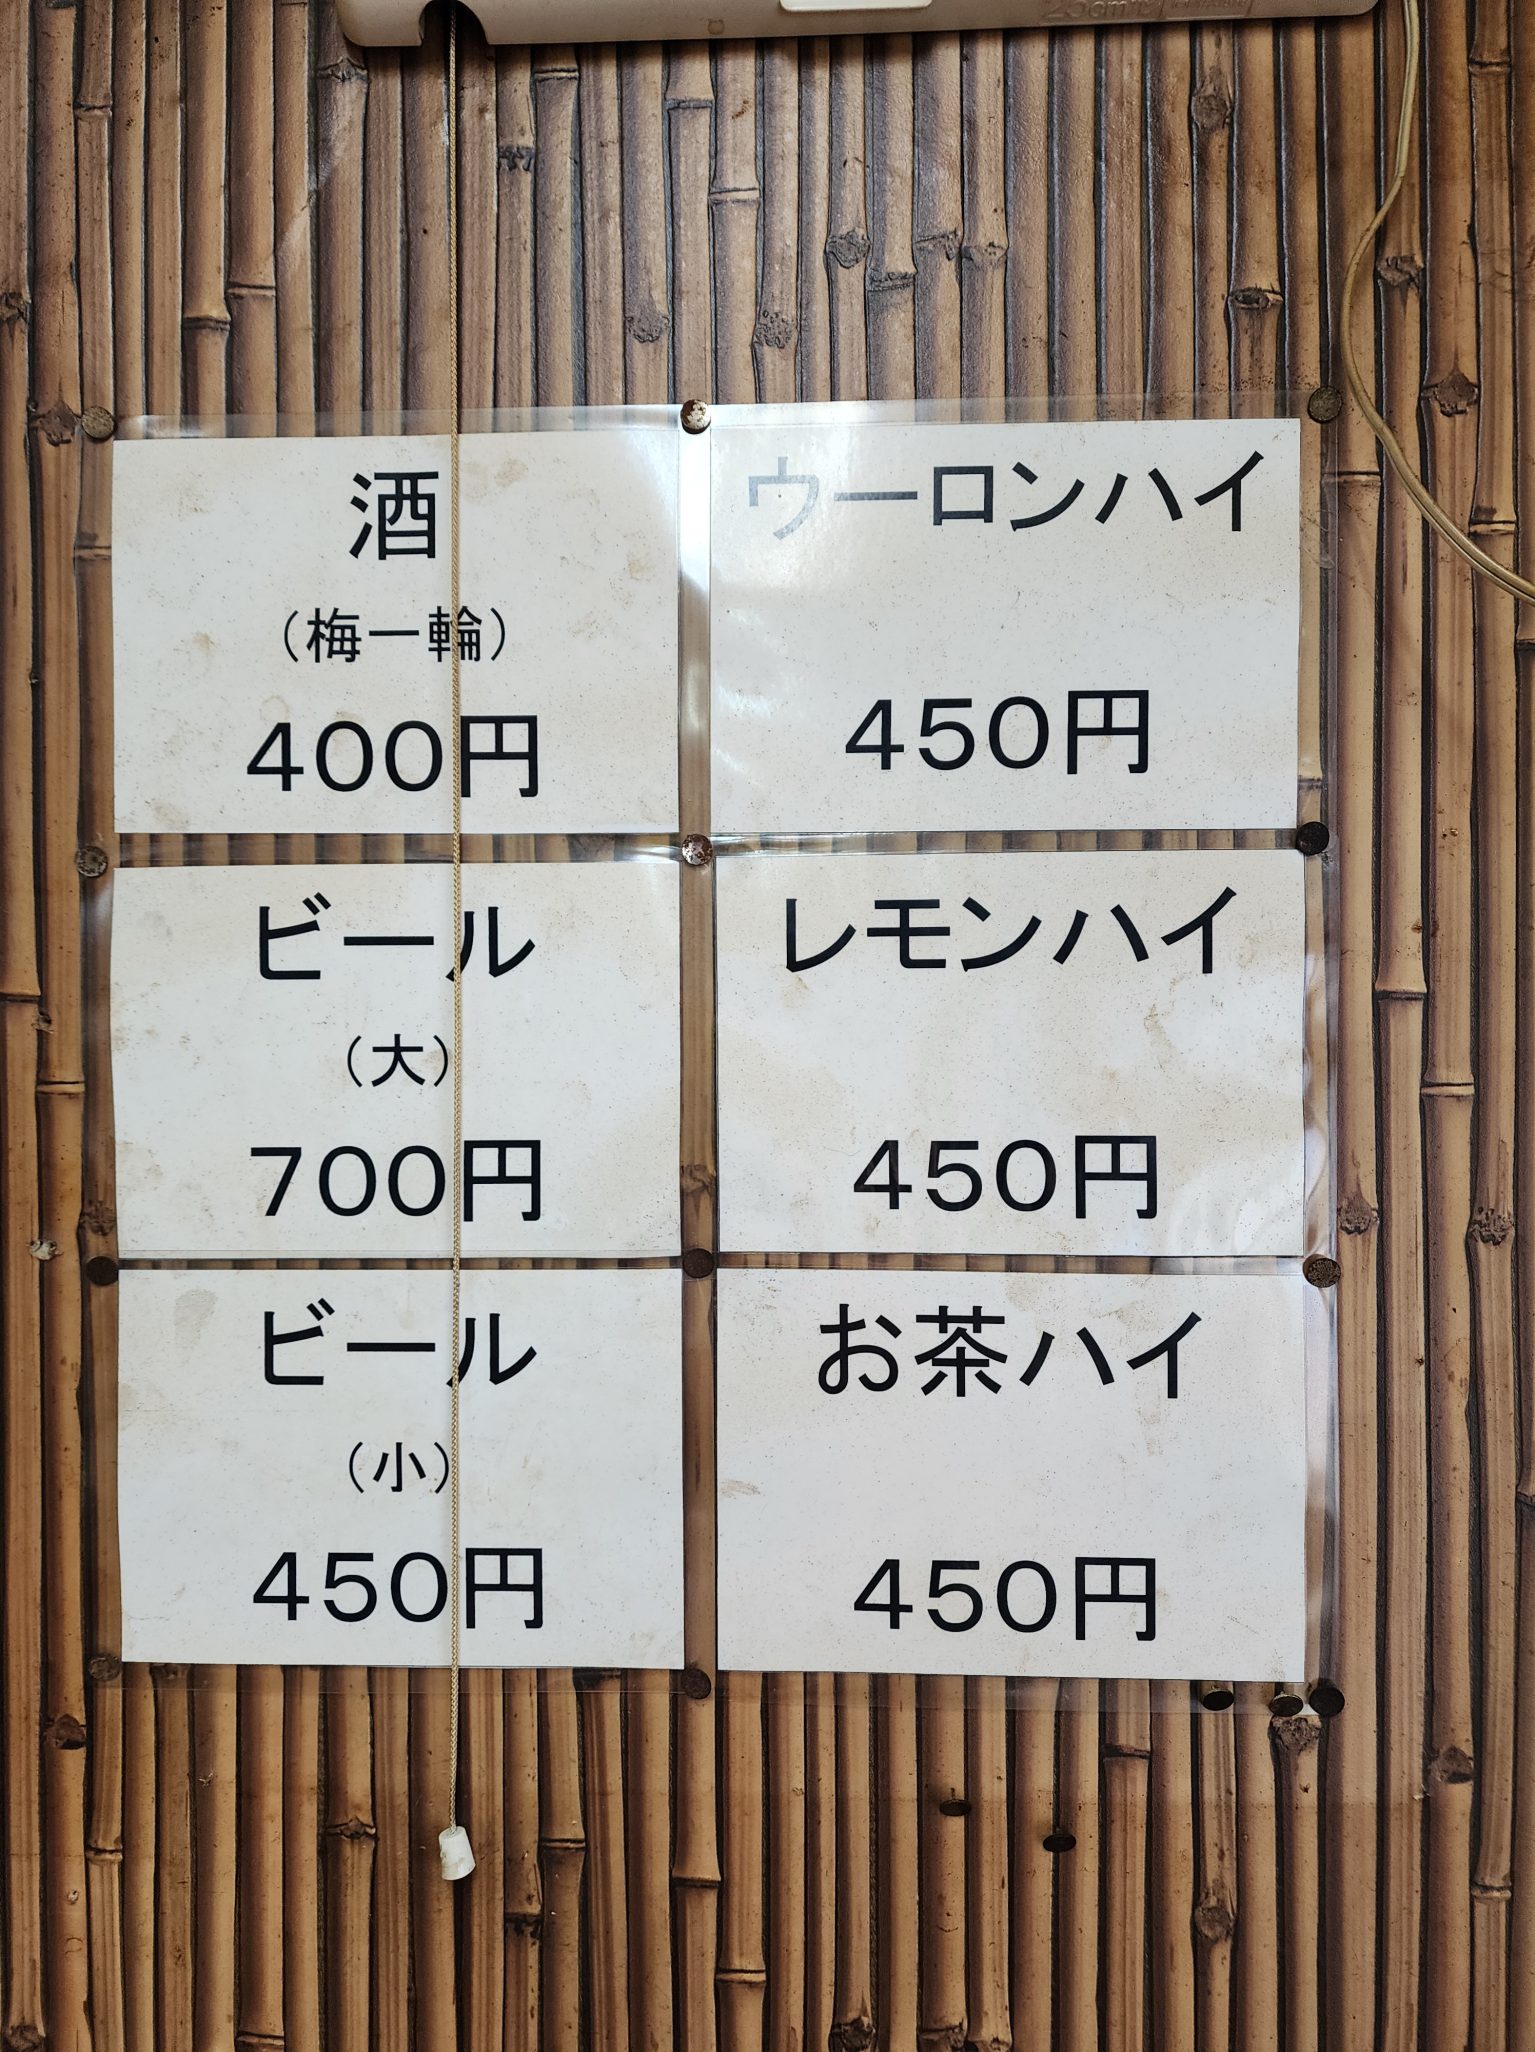 酒
（梅一輪）
400円
ビール
（大）
700円
ビール
（小）
450円
ウーロンハイ
450円
レモンハイ
450円
お茶ハイ
450円